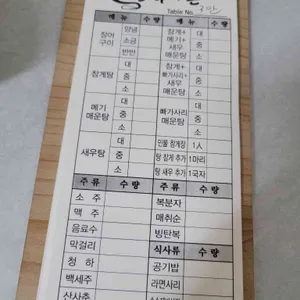 Table No.
메뉴 수량 메뉴 수량
장어구이 양념
소금
반반
참게+메기+새우매운탕 대
중
소
참게탕 대
중
소
참게+빠가사리+새우매운탕 대
중
소
메기매운탕 대
중
소
빠가사리매운탕 대
중
소
새우탕 대
중
소
민물 참게장 1人
탕 참게 추가 1마리
탕 새우 추가 1국자
주류 수량
소주
맥주
음료수
막걸리
청하
백세주
산사춘
복분자
매취순
빙탄복
식사류 수량
공기밥
라면사리